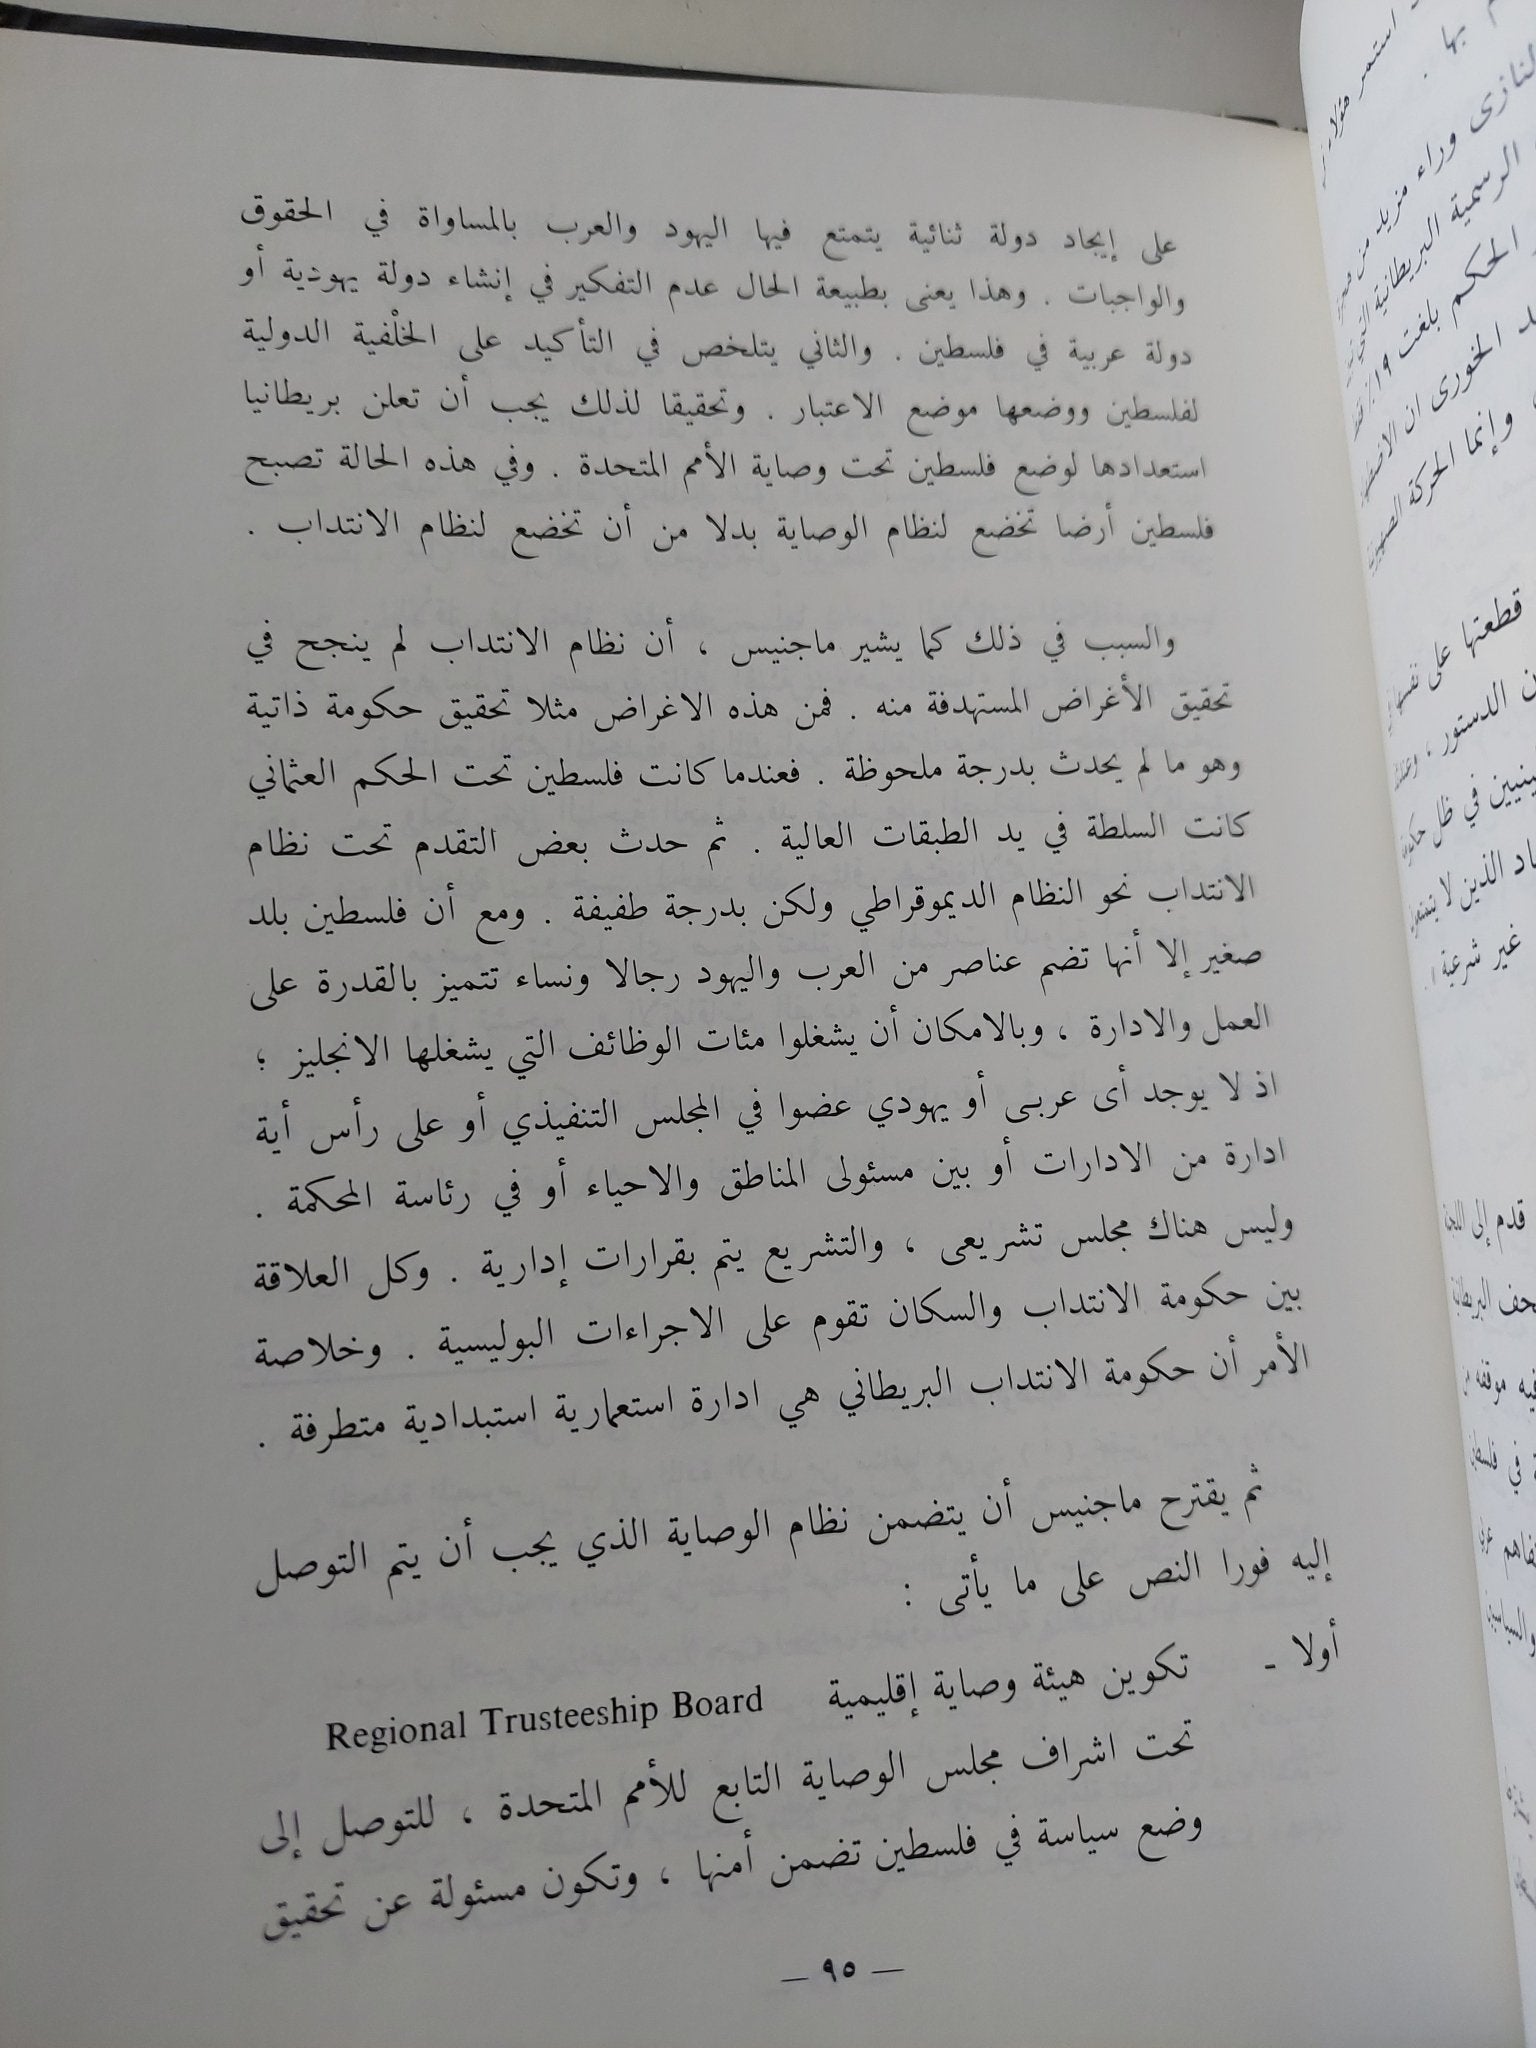 على إيجاد دولة ثنائية يتمتع فيها اليهود والعرب بالمساواة في الحقوق
والواجبات . وهذا يعنى بطبيعة الحال عدم التفكير في إنشاء دولة يهودية أو
دولة عربية في فلسطين . والثاني يتلخص في التأكيد على الخلْفية الدولية
لفلسطين ووضعها موضع الاعتبار . وتحقيقا لذلك يجب أن تعلن بريطانيا
استعدادها لوضع فلسطين تحت وصاية الأمم المتحدة . وفي هذه الحالة تصبح
فلسطين أرضا تخضع لنظام الوصاية بدلا من أن تخضع لنظام الانتداب .
والسبب في ذلك كما يشير ماجنيس ، أن نظام الانتداب لم ينجح في
تحقيق الأغراض المستهدفة منه . فمن هذه الاغراض مثلا تحقيق حكومة ذاتية
وهو ما لم يحدث بدرجة ملحوظة . فعندما كانت فلسطين تحت الحكم العثماني
كانت السلطة في يد الطبقات العالية . ثم حدث بعض التقدم تحت نظام
الانتداب نحو النظام الديموقراطي ولكن بدرجة طفيفة . ومع أن فلسطين بلد
صغير إلا أنها تضم عناصر من العرب واليهود رجالا ونساء تتميز بالقدرة على
العمل والادارة ، وبالامكان أن يشغلوا مئات الوظائف التي يشغلها الانجليز ؛
اذ لا يوجد أى عربى أو يهودي عضوا في المجلس التنفيذي أو على رأس أية
ادارة من الادارات أو بين مسئولى المناطق والاحياء أو في رئاسة المحكمة .
وليس هناك مجلس تشريعى ، والتشريع يتم بقرارات إدارية . وكل العلاقة
بين حكومة الانتداب والسكان تقوم على الاجراءات البوليسية . وخلاصة
الأمر أن حكومة الانتداب البريطاني هي ادارة استعمارية استبدادية متطرفة .
ثم يقترح ماجنيس أن يتضمن نظام الوصاية الذي يجب أن يتم التوصل
إليه فورا النص على ما يأتى :
أولا - تكوين هيئة وصاية إقليمية Regional Trusteeship Board
تحت اشراف مجلس الوصاية التابع للأمم المتحدة ، للتوصل إلى
وضع سياسة في فلسطين تضمن أمنها ، وتكون مسئولة عن تحقيق
— ٩٥ —
استمر هؤلاء
بها .
النازى وراء مزيد من
الرسمية البريطانية التي
الحكم بلغت ١٩٪ فقط
الخورى ان
وإنما الحركة
قطعتها على نفسها
الدستور ،
في ظل
الذين لا
غير شرعية » .
قدم إلى اللجنة
البريطانية
فيه موقفه من
في فلسطين